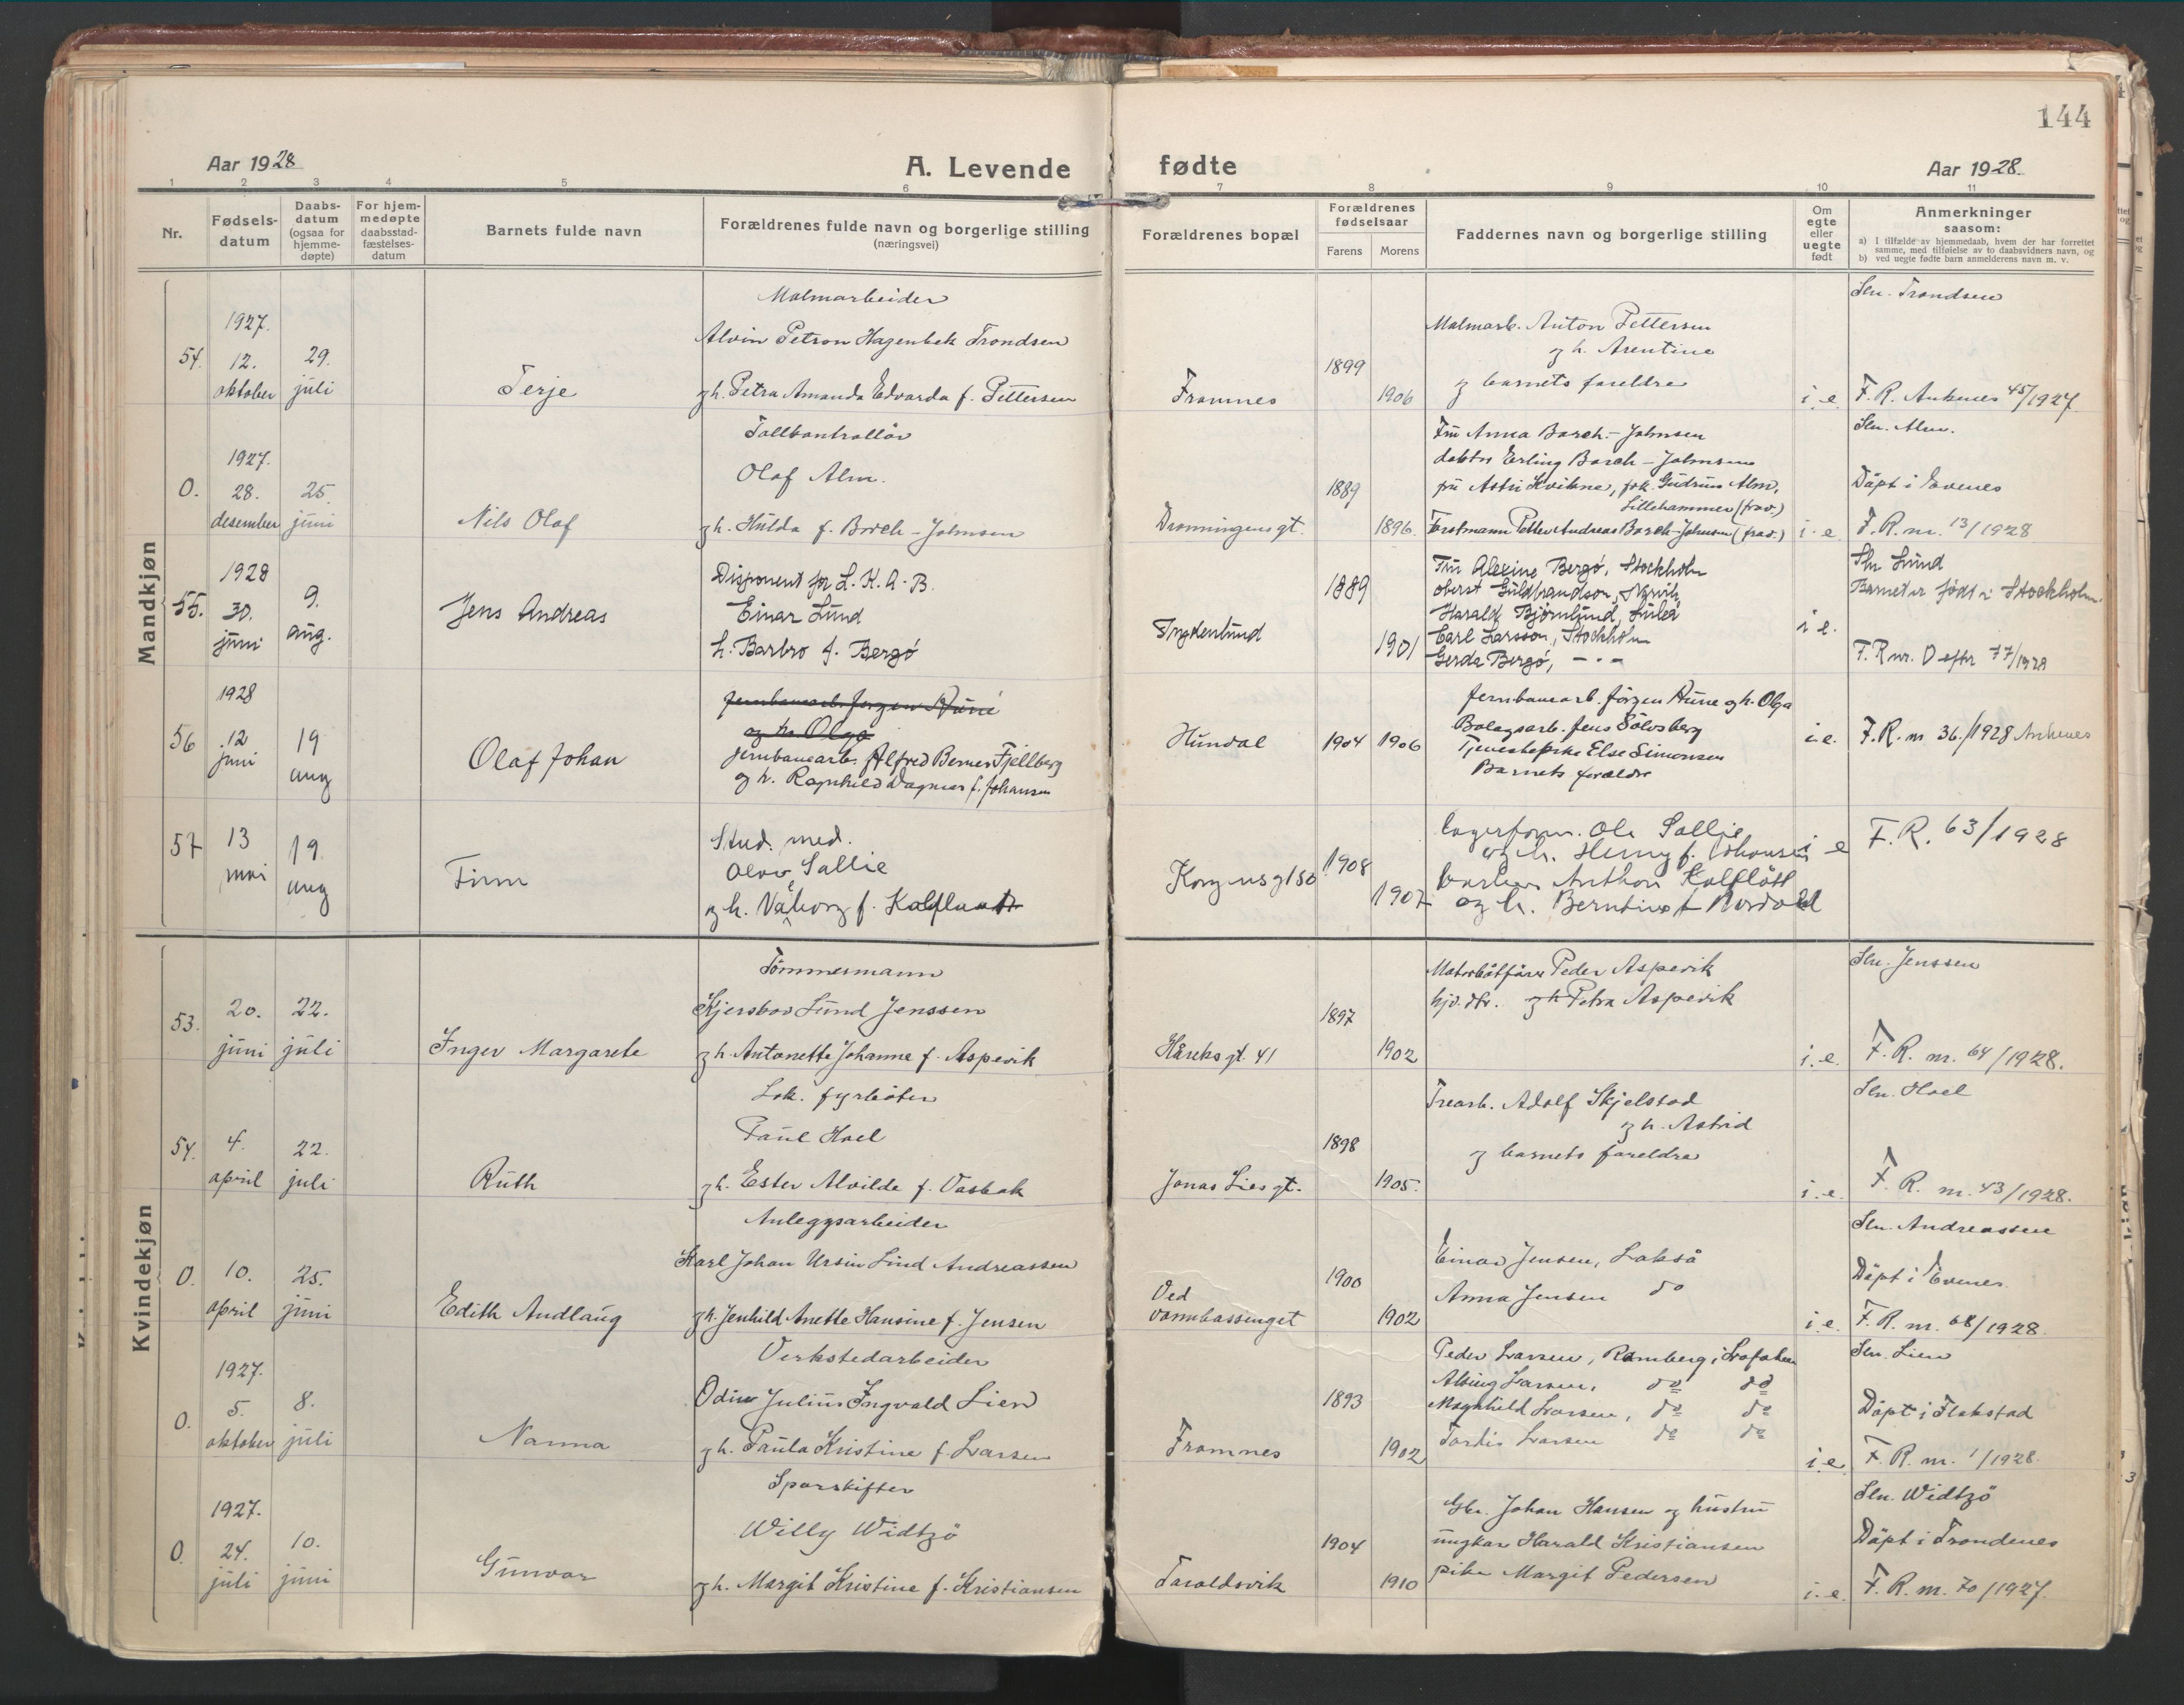 144
Aar 1928
A. Levende fødte
Aar 1928.
1 2 3 4 5 6 7 8 9 10 11
Nr.
Fødselsdatum
Daabsdatum (ogsaa for hjemmedøpte)
For hjemmedøpte daabsstadfæstelsesdatum
Barnets fulde navn
Forældrenes fulde navn og borgerlige stilling (næringsvei)
Forældrenes bopæl
Forældrenes fødselsaar
Farens Morens
Faddernes navn og borgerlige stilling
Om egte eller uegte født
Anmerkninger saasom:
a) I tilfælde av hjemmedaab, hvem der har forrettet samme, med tilføielse av to daabsvidners navn, og
b) ved uegte fødte barn anmelderens navn m. v.
Mandkjøn
54. 1927. 12. oktober 29. juli
Terje
Malmarbeider
Alvin Petron Hagenbek Trondsen
og h. Petra Amanda Edvarda f. Pettersen
Framnes
1899 1906
Malmarb. Anton Pettersen
og h. Arentine
og barnets foreldre
i. e.
Sln. Trondsen
F. R. Ankenes 45/1927
0. 1927. 28. desember 25. juni
Nils Olaf
Tollkontrollør
Olaf Alm.
og h. Hulda f. Borch-Johnsen
Dronningensgt.
1889 1896.
Fru Anna Borch-Johnsen
doktor Erling Borch-Johnsen
fru Astri Kvikne, frk. Gudrun Alm,
Lillehammer (frav.)
Forstmann Petter Andreas Borch-Johnsen (frav.)
i. e.
Sln. Alm.
Døpt i Evenes
F. R. nr. 13/1928
55. 1928 30. juni 9. aug.
Jens Andreas
Disponent for L. K. A-B.
Einar Lund
h. Barbro f. Bergö
1889 1901
Fru Alexine Bergö, Stockholm
oberst Guldbrandson, Narvik
Harald Bjørnlund, Luleå
Carl Larsson, Stockholm
Gerda Bergö, -"-
i e.
Sln Lund
Barnet er født i Stockholm.
F. R nr. 0 efter 77/1928
56 1928 12 juni 19 aug
Olaf Johan
Jernbanearb. Jørgen Rune
og h. Olga
Jernbanearb. Alfred Berner Fjellberg
og h. Ragnhild Dagmar f. Johansen
Hundal
1904 1906
Jernbanearb. Jörgen Rune og h. Olga
Bolagsarb. Jens Sölvsberg
Tjenestepike Else Simonsen
Barnets forældre
i. e.
F. R. nr 36./1928 Ankenes
57 13 mai 19. aug
Finn
Stud. med.
Olav Sallie
og h. Valborg f.
Kongensgt 50
1908 1907
Lagerform. Ole Sallie
og h. Henny f. Johansen
Anthon Kalflott
og h. Berntine f Nordahl
i e
F. R. 63/1928
Kvindekjøn
53. 20. juni 22. juli
Inger Margarete
Tömmermann
Kjersbov Lund Jenssen
og h. Antonette Johanne f. Aspevik
Håreks gt. 41
1897 1902
Motorbåtfører Peder Aspevik
og h Petra Aspevik
i. e.
Sln. Jenssen
F. R. nr. 64/1928.
54. 4. april 22. juli
Ruth
Lok. fyrböter
Paul Hoel
og h. Ester Alvilde f. Vasbak
Jonas Lies gt.
1898 1905.
Trearb. Adolf Skjelstad
og h. Astrid
og barnets foreldre
i. e.
Sln. Hoel
F. R. nr. 43/1928.
0. 10. april 25. juni
Edith Audlaug
Anleggsarbeider
Karl Johan Ursin Lind Andreassen
og h. Jenhild Anette Hansine f. Jensen
Ved vannbassenget
1900 1902
Einar Jensen, Lakså
Anna Jensen do
i. e.
Sln. Andreassen
Døpt i Evenes
F. R. nr. 68/1928.
0. 1927. 5. oktober 8. juli
Nanna
Verkstedarbeider
Odin Julius Ingvald Lien
og h. Paula Kristine f. Larsen
Framnes
1893 1902
Peder Larsen, Ramberg i Lofoten
Alving Larsen, do do
Magnhild Larsen, do do
Tordis Larsen do do
i. e
Sln. Lien
Døpt i Flakstad
F. R. nr. 1/1928.
0. 1927. 24. juli 10. juni
Gunvor
Sporskifter
Willy Widtzö
og h. Margit Kristine f. Kristiansen
Taraldsvik
1904 1910
Gbr. Johan Hansen og hustru
ungkar Harald Kristiansen
pike Margit Pedersen
i. e.
Sln. Widtzö
Døpt i Trondenes
F. R. nr. 70/1927.